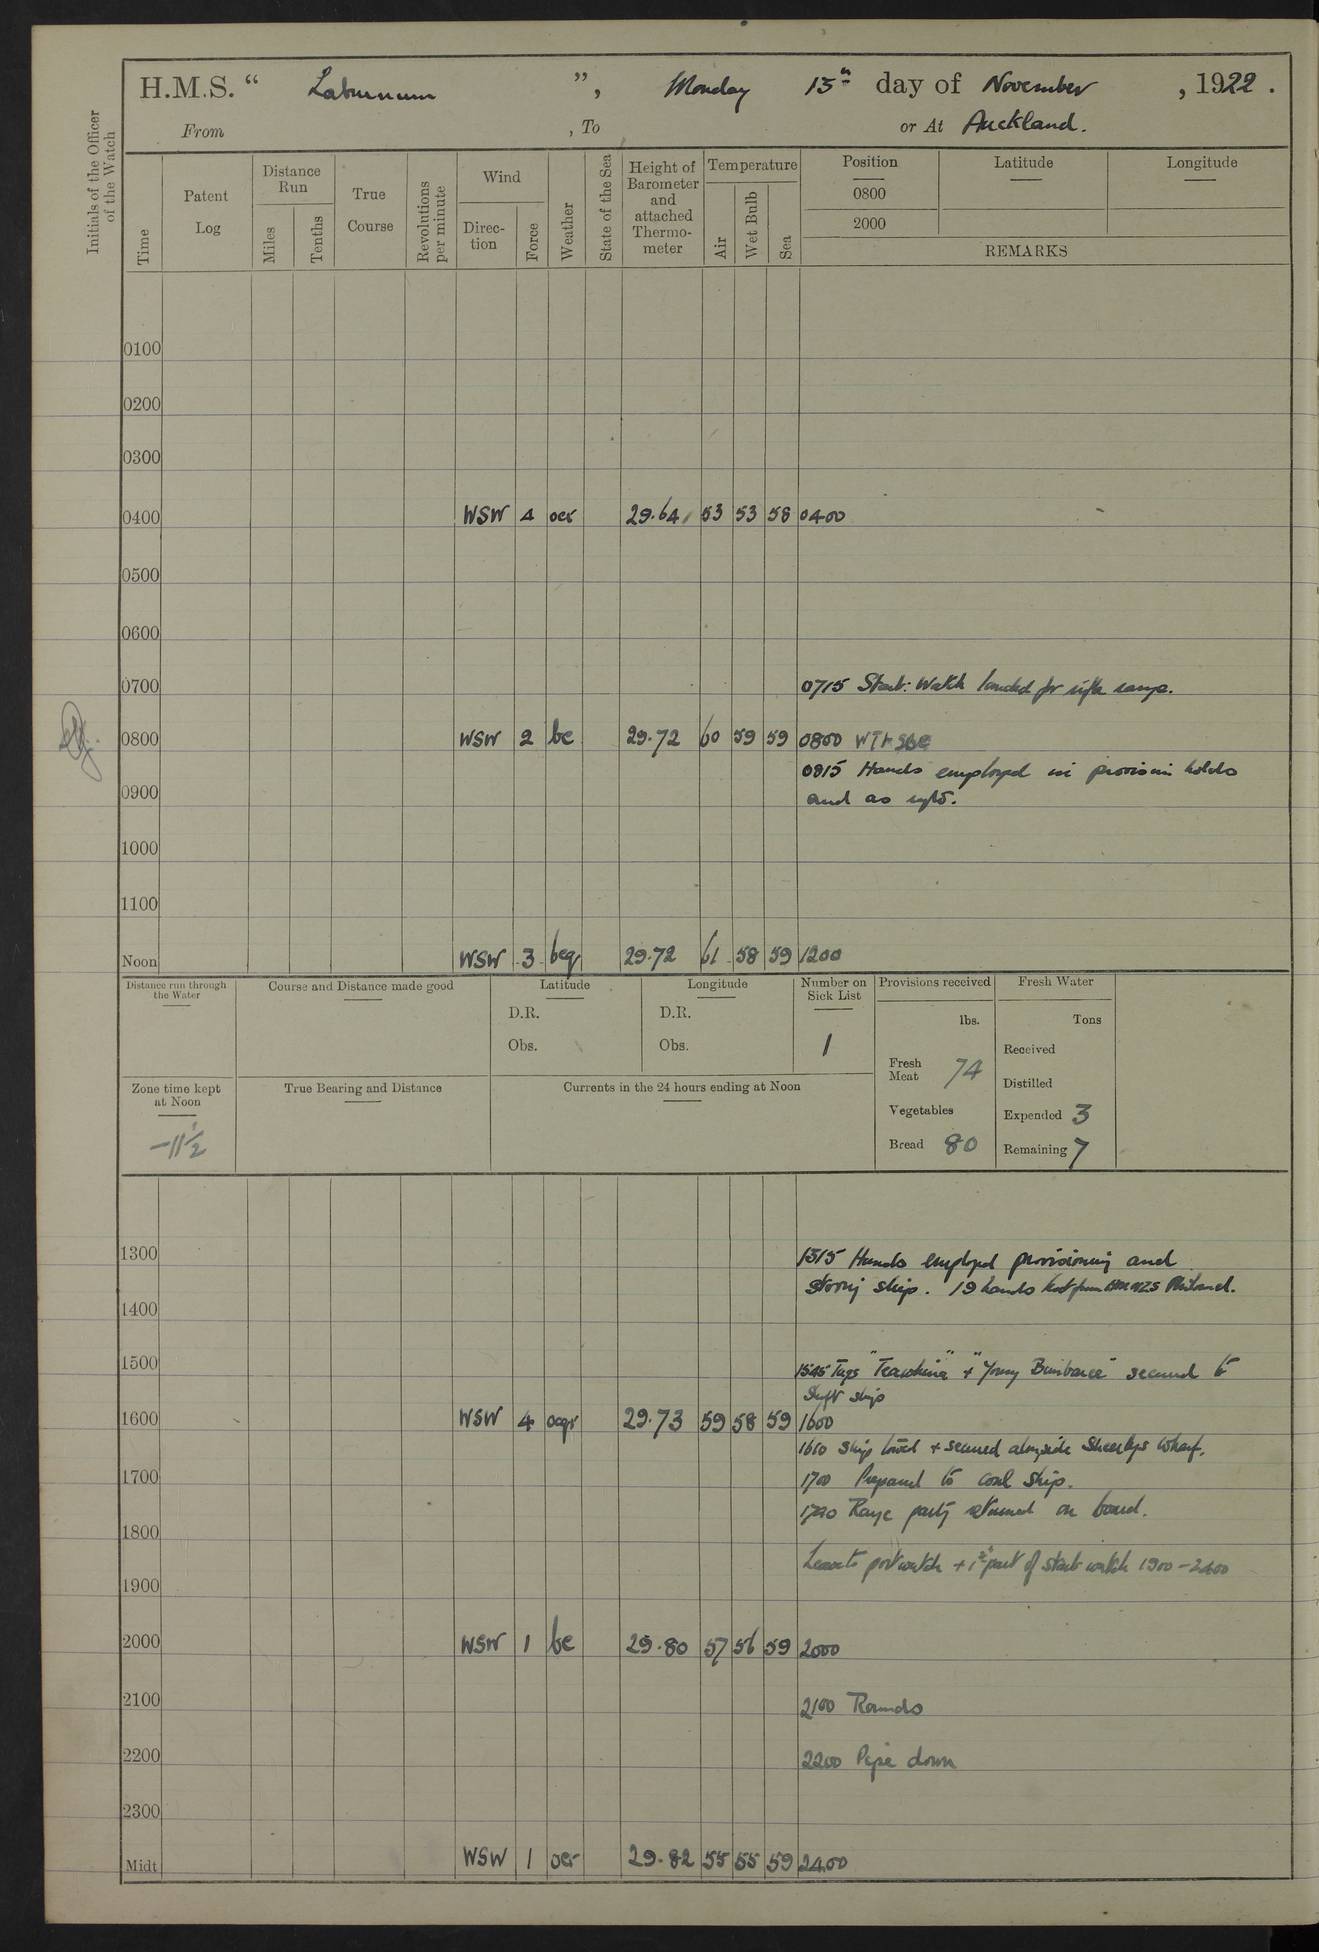 H.M.S. “ Laburnum ”, Monday 13th day of November, 1922.
From , To or At Auckland.
Initials of the Officer of the Watch
Time
Patent Log
Distance Run
Miles
Tenths
True Course
Revolutions per minute
Wind
Direc-tion
Force
Weather
State of the Sea
Height of Barometer and attached Thermo-meter
Temperature
Air
Wet Bulb
Sea
Position Latitude Longitude
0800
2000
REMARKS
0100
0200
0300
0400 WSW 4 ocr 29.64 53 53 58 0400
0500
0600
0700 0715 Starb: Watch landed for rifle range.
0800 WSW 2 bc 29.72 60 59 59 0800
0815 Hands employed in provision holds
0900 and as reqd.
1000
1100
Noon WSW 3 bcq 29.72 61 58 59 1200
Distance run through the Water
Course and Distance made good
Latitude
D.R.
Obs.
Longitude
D.R.
Obs.
Number on Sick List
1
Provisions received
lbs.
Fresh Meat 74
Vegetables
Bread 80
Fresh Water
Tons
Received
Distilled
Expended 3
Remaining 7
Zone time kept at Noon
-11½
True Bearing and Distance
Currents in the 24 hours ending at Noon
1300 1315 Hands employed provisioning and
storing ship. 19 hands from HMNZS Philomel.
1400
1500 1545 Tugs " " + "Young Bunbaree" secured to
shift ship
1600 WSW 4 ocqr 29.73 59 58 59 1600
1610 Ship towed + secured alongside wharf.
1700 1700 Prepared to coal ship.
Range party returned on board.
1800
Leave to port watch + 1st part of starb watch 1900-2400
1900
2000 WSW 1 bc 29.80 57 56 59 2000
2100 2100 Rounds
2200 2200 Pipe down
2300
Midt WSW 1 ocr 29.82 55 55 59 2400